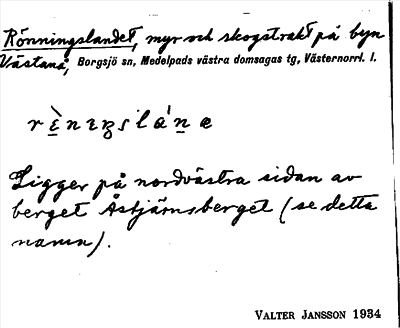 Rönningslandet, myr och skogstrakt på byn
Västanå, Borgsjö sn, Medelpads västra domsagas tg, Västernorrl. l.
Ligger på nordvästra sidan av
berget Åstjärnsberget (se detta
namn).
VALTER JANSSON 1934